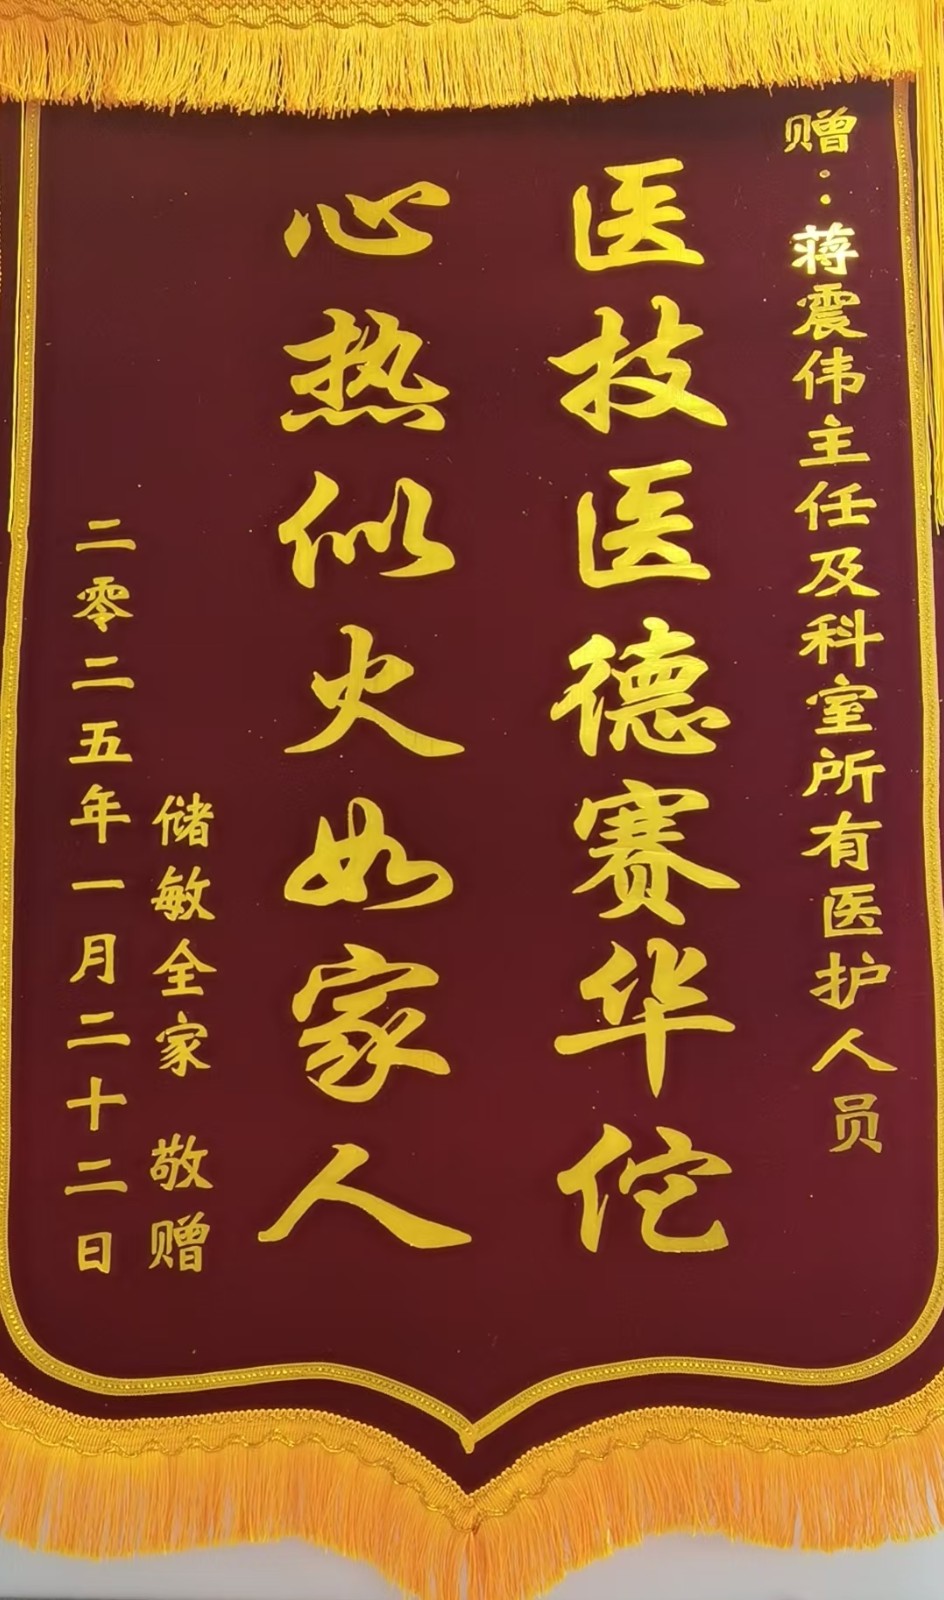 赠：蒋震伟主任及科室所有医护人员
医技医德赛华佗
心热似火如家人
储敏全家 敬赠
二零二五年一月二十二日